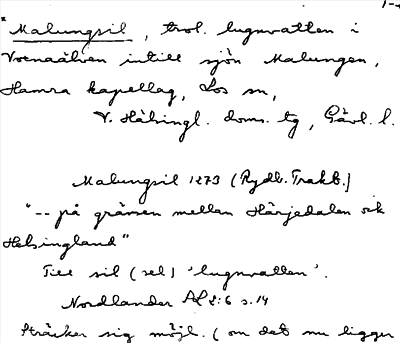 *Malungsil, trol. lugnvatten i
Voxnaälven intill sjön Malungen,
Hamra kapellag, Los sn,
V. Hälsingl. doms. tg, Gävl. l.
Malungsil 1273 (Rydb. Trakt.)
"-- på gränsen mellan Härjedalen och
Helsingland"
Till sil (sel) 'lugnvatten'.
Nordlander 2:6 s. 14
Sträcker sig möjl. (om det nu ligger